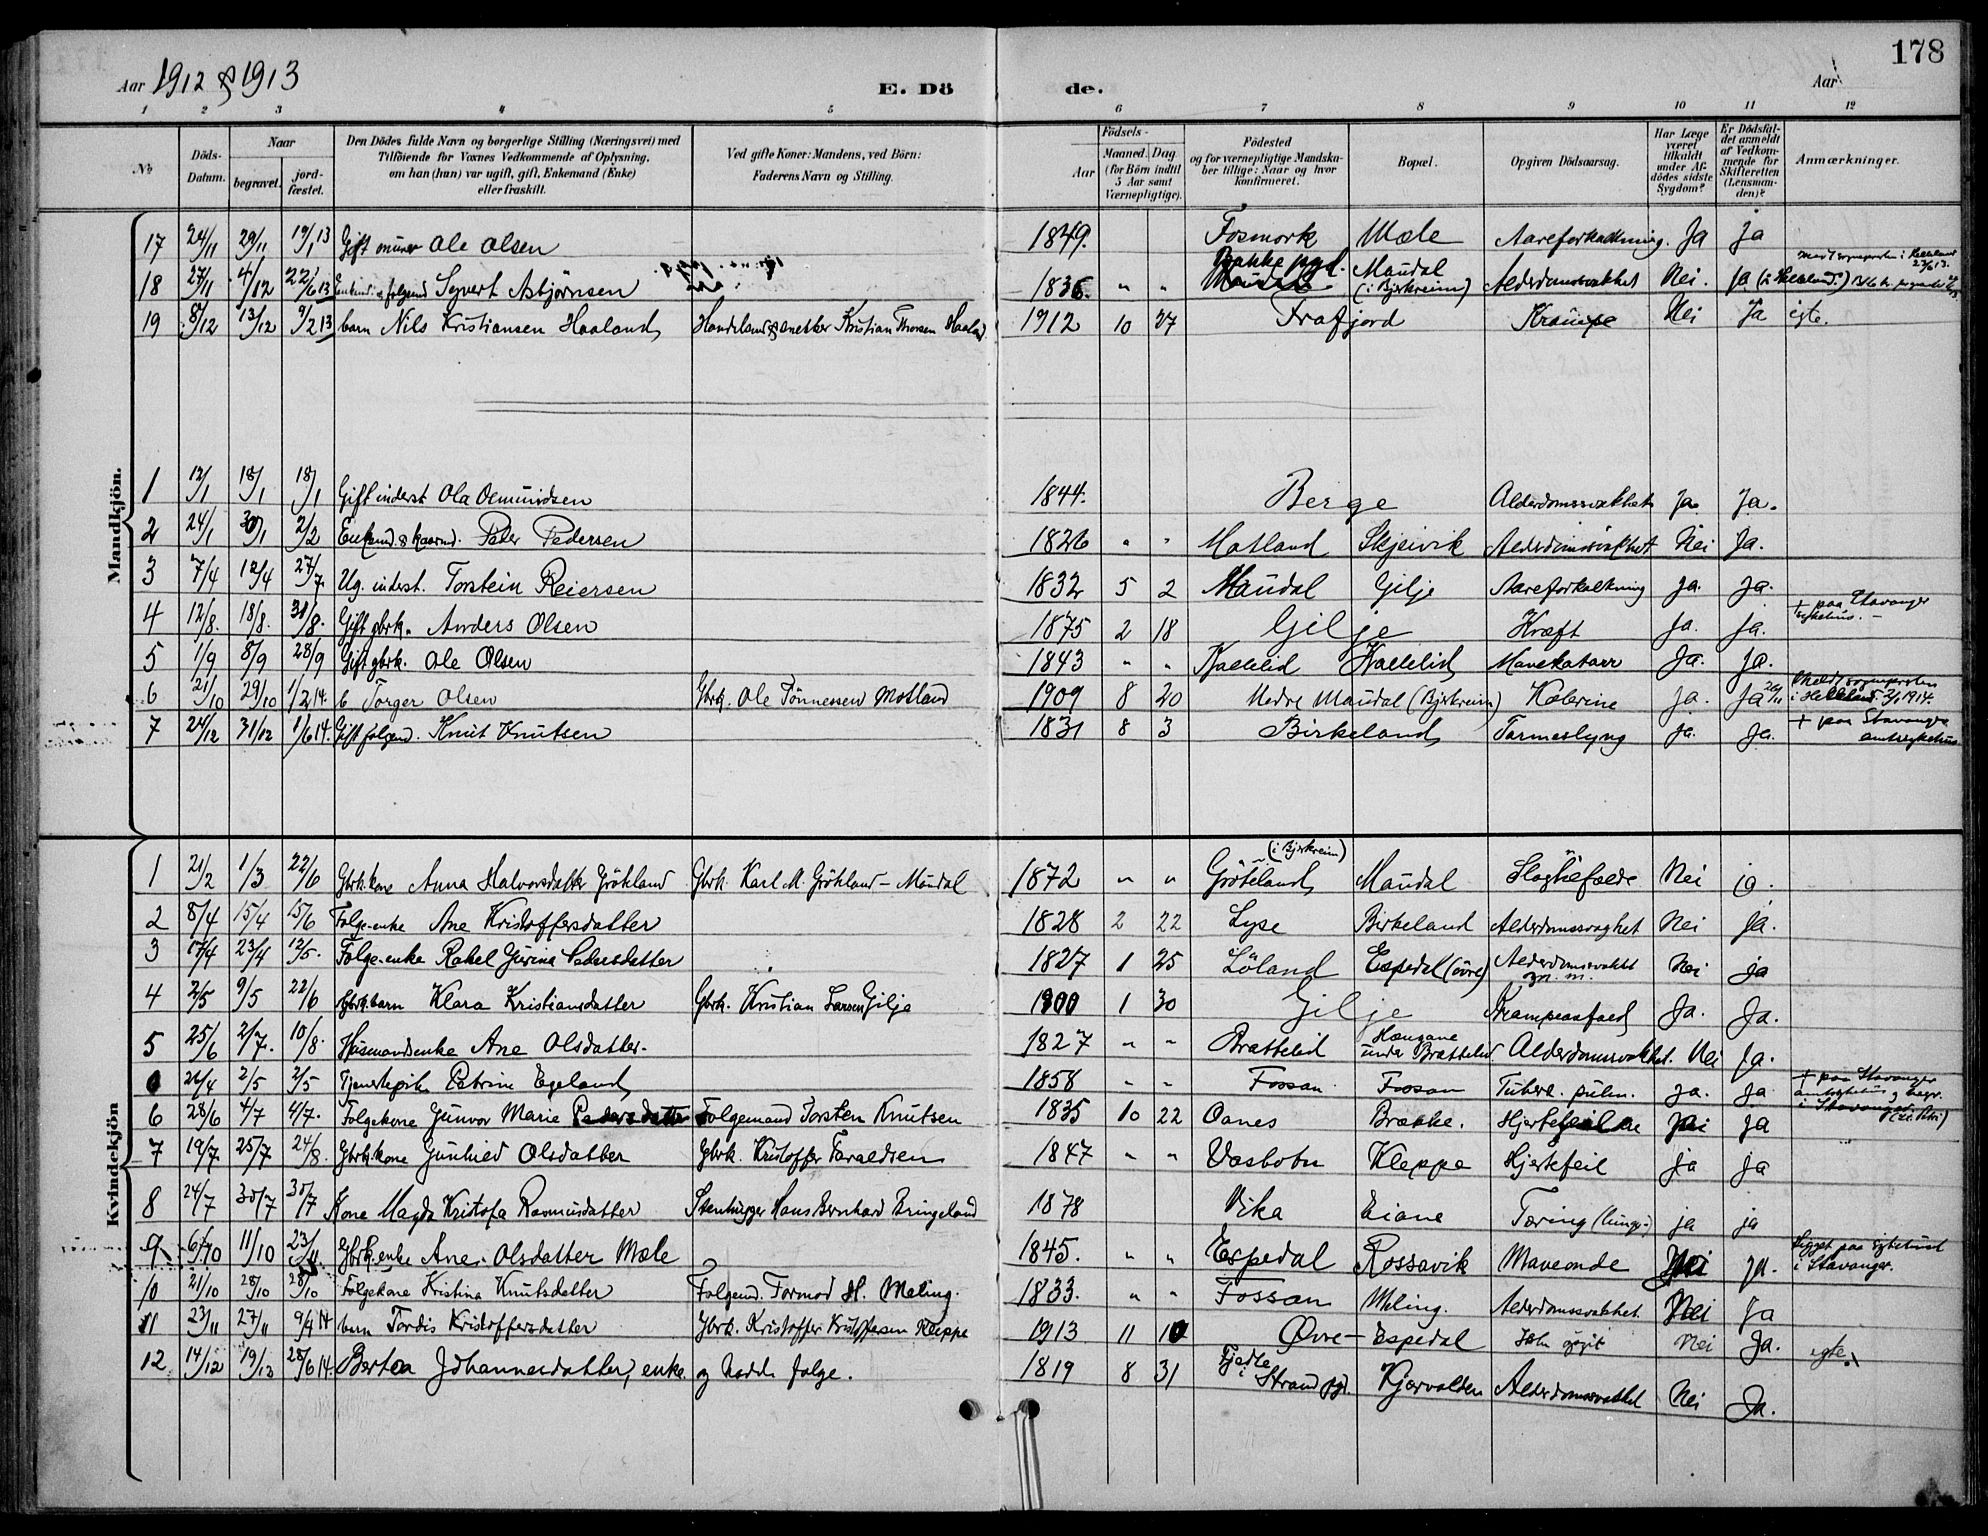 178
Aar 1912 & 1913 E. Dö de. Aar
1 2 3 4 5 6 7 8 9 10 11 12
No
Döds-Datum.
Naar
begravet.
jord-fæstet.
Den Dödes fulde Navn og borgerlige Stilling (Næringsvei) med
Tilföiende for Voxnes Vedkommende af Oplysning,
om han (hun) var ugift, gift, Enkemand (Enke)
eller fraskilt.
Ved gifte Koner: Mandens, ved Börn:
Faderens Navn og Stilling.
Födsels-
Aar
Maaned. Dag
(for Börn indtil
5 Aar samt
Værnepligtige).
Födested
og for værnepligtige Mandska-
ber tillige: Naar og hvor
konfirmeret.
Bopæl.
Opgiven Dödsaarsag.
Har Læge
været
tilkaldt
under Af-
dödes sidste
Sygdom?
Er Dödsfal-
det anmeldt
af Vedkom-
mende for
Skifteretten
(Lensman-
den)?
Anmærkninger.
Mandkjön.
17 24/11 29/11 19/1 13 Gift murer Ole Olsen 1849. Fosmork Mæle Aareforkalkning. Ja Ja
18 27/11 4/12 22/6 13 Syvert Asbjørnsen 1836 " " Bakke pgd. Maudal (i Bjerkreim) Alderdomssvakhet Nei. Ja
19 8/12 13/12 9/2 13 barn Nils Kristiansen Haaland Kristian Thorsen Haaland 1912 10 27 Frafjord Krampe Nei Ja egte.
1 12/1 18/1 18/1 Gift inderst Ola Osmundsen 1844. Berge Alderdomssvakhet Ja Ja.
2 24/1 30/1 2/2 Enkemd. & kaarmd. Peder Pedersen 1826 " " Motland Skjeivik Alderdomssvakhet Nei Ja.
3 7/4 12/4 27/7 Ug. inderst. Torstein Reiersen 1832 5 2 Maudal Gilje Aareforkalkning Ja. Ja.
4 12/8 18/8. 31/8. Gift gbrk. Anders Olsen 1875 2 18 Gilje Kræft Ja. Ja. + paa Stavanger sykehus. -
5 1/9 8/9 28/9 Gift gbrk. Ole Olsen 1843 " " Kallelid Kallelid Mavekatarr Ja. Ja.
6 21/10 29/10 1/2 14. b Torger Olsen Gbrk. Ole Tönnessen Motland 1909 8 20 Nedre Maudal (Bjerkreim) Kolerine Ja. Ja
7 24/12 31/12 1/6 14. Gift folgemd. Knut Knutsen 1831 8 3 Birkeland Tarmeslyng Ja. Ja. + paa Stavanger amtssykehus
Kvindekjön
1 21/2 1/3 22/6 Gbrk.kone Anna Halvorsdatter Grökland Gbrk. Karl M. Grökland - Maudal 1872 " " (i Bjerkreim) Maudal Slagtilfælde Nei ja.
2 8/4 15/4 15/6 Folge-enke Ane Kristoffersdatter 1828 2 22 Lyse Birkeland Alderdomssvaghet Nei Ja.
3 17/4 23/4 12/5. Folge-enke Rakel Gurina Pedersdatter 1827 1 25 Löland Espedal (övre) Alderdomssvakht Nei ja
4 2/5 9/5 22/6 Gbrk.barn Klara Kristiansdatter Gbrk. Kristian Larsen Gilje 1900 1 30 Gilje Krampeanfald Ja. Ja.
5 25/6 2/7. 10/8. Husmandsenke Ane Olsdatter. 1827 " " Brattelid under Brattelid Alderdomssvakhet. Nei Ja.
26/4 2/5 2/5 Tjenestepike Petrine Egeland 1858 " " Fossan Fossan Tuberk. pulm. Ja. Ja + paa Stavanger
6 28/6 4/7 4/7. Folgekone Gunvor Marie Pedersdatter Folgemand Torsten Knutsen 1835 10 22 Oanes Brække. Hjertefeil Nei Ja
7 19/7 25/7 24/8. Gbrk.kone Gunhild Olsdatter Gbrk. Kristoffer Taraldsen 1847 " " Vasbotn Kleppe Hjertefeil ja ja
8 24/7 30/7 30/7 Kone Magda Kristofa Rasmusdatter Stenhugger Hans Bernhard Bringeland 1878 Vika Eiane Tæring (lunge-) ja ja
9. 6/10 11/10 23/11 Gbrk.enke Ane Olsdatter Mæle 1845. " " Espedal Rossavik Maveonde Nei Ja. i Stavanger.
10 21/10 28/10 28/10 Folgekone Kristina Knutsdatter Folgemd. Tormod H. Meling. 1833. " " Fossan Meling. Alderdomssvakhet. Nei Ja
11 23/11 27/11 9/4 14 barn Tordis Kristoffersdatter Gbrk. Kristoffer Kristoffersen Kleppe 1913 11 10 Øvre-Espedal Nei Ja. egte.
12 14/12 19/12 28/6 14. Bertea Johannesdatter, enke. 1819 8 31 Fjelde i Strand pgd. Kjærvolden Alderdomssvakhet Nei Ja.